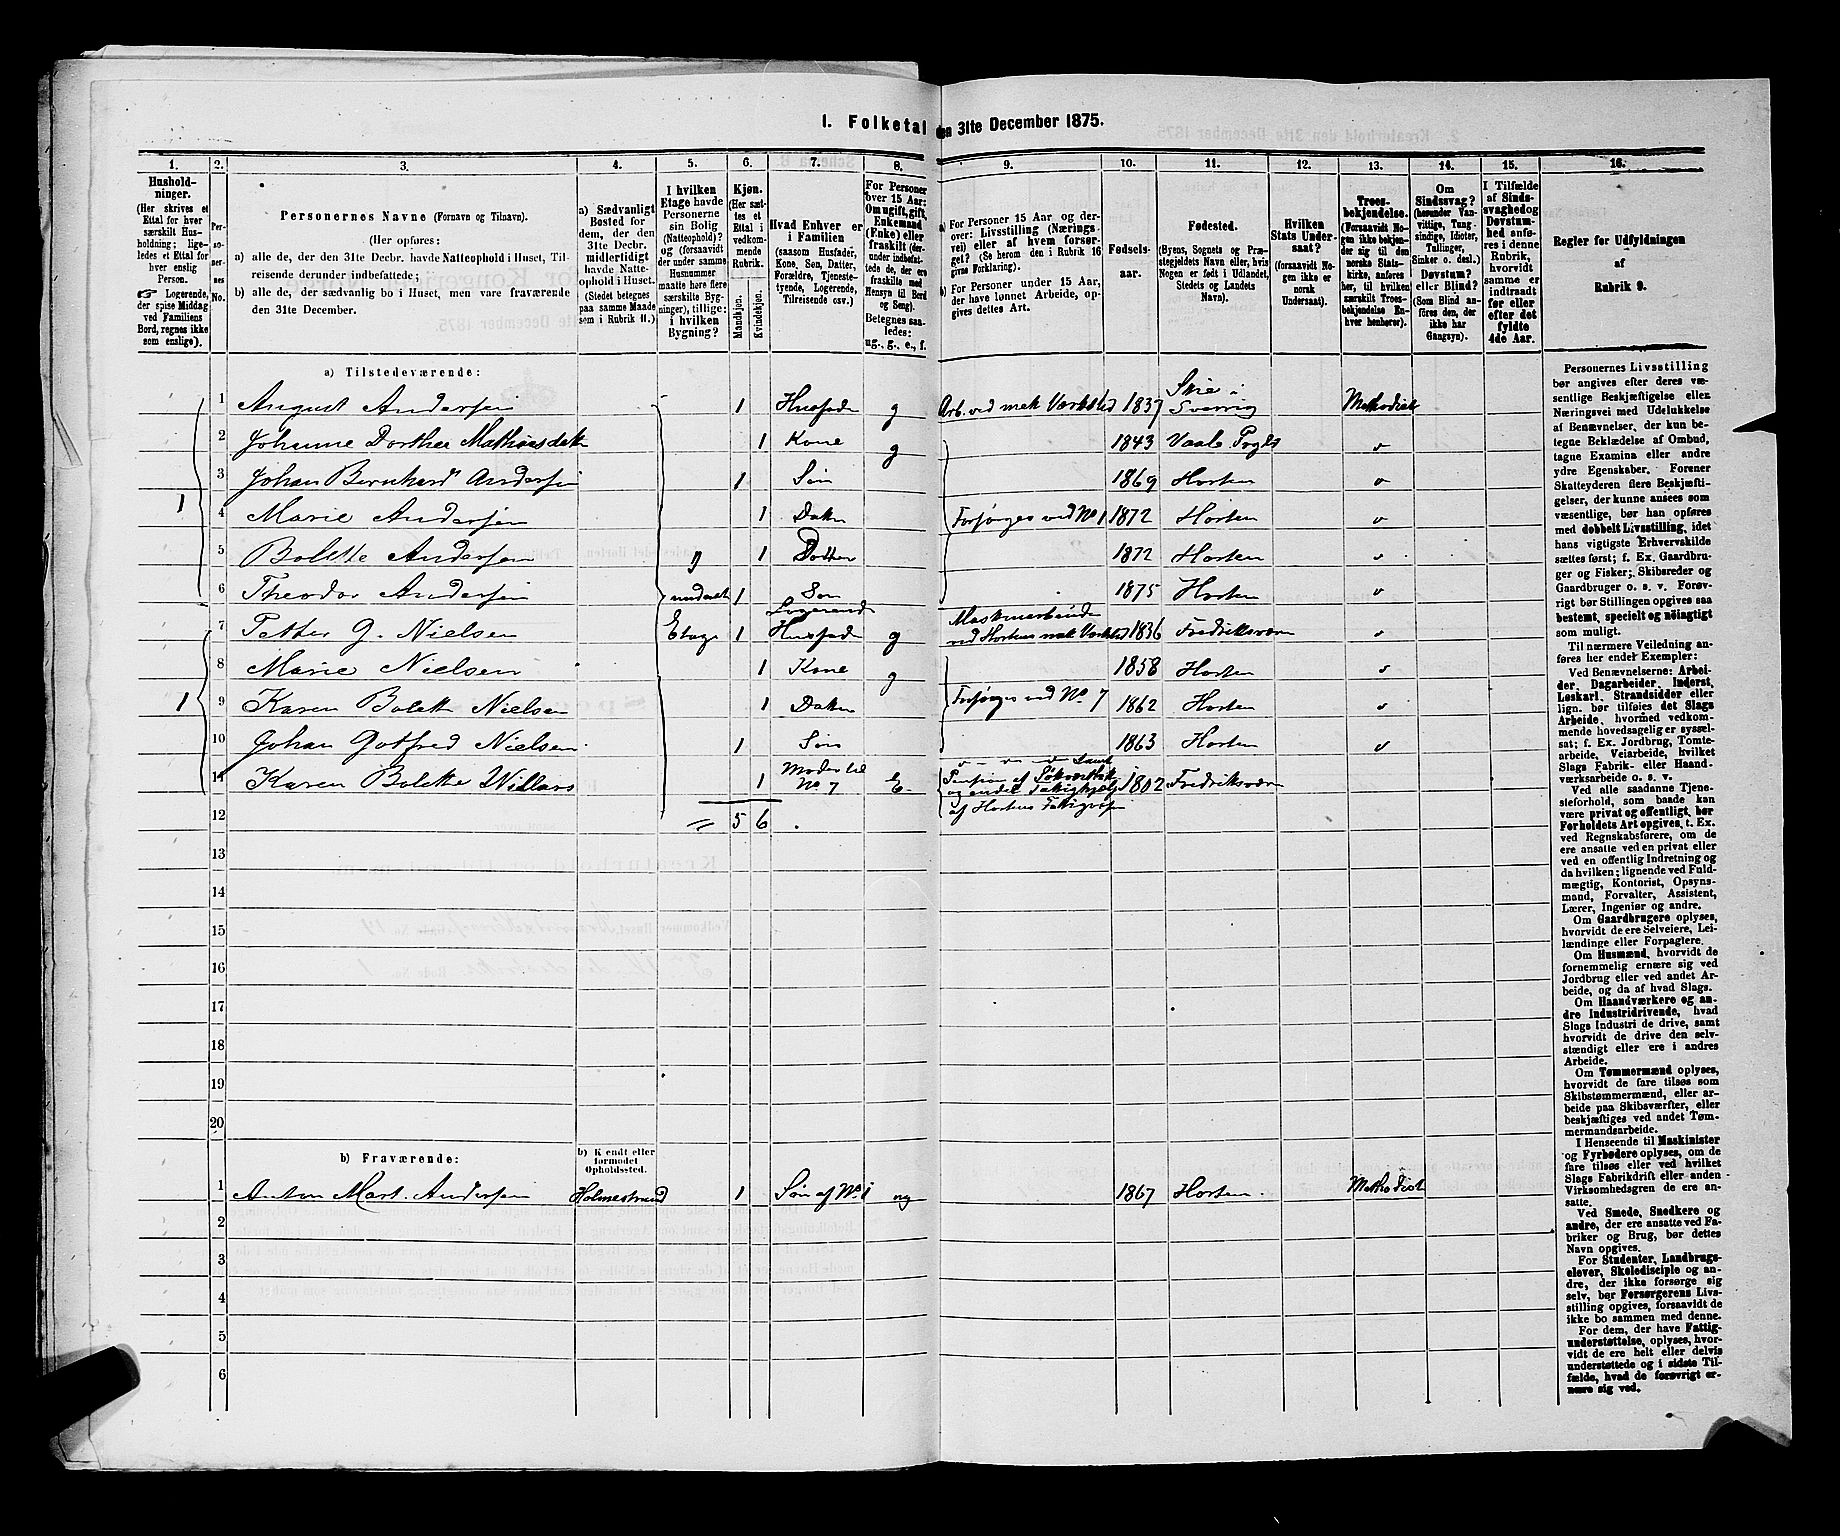 1. Folketal den 31te December 1875.
1. 2. 3. 4. 5. 6. 7. 8. 9. 10. 11. 12. 13. 14. 15. 16.
Hushold-
ninger.
(Her skrives et
Ettal for hver
særskilt Hus-
holdning; lige-
ledes et Ettal for
hver enslig
Person.
☞ Logerende,
der spise Middag
ved Familiens
Bord, regnes ikke
som enslige).
Per-
so-
ner-
nes
No.
Personernes Navne (Fornavn og Tilnavn).
(Her opføres:
a) alle de, der den 31te Decbr. havde Natteophold i Huset, Til-
reisende derunder indbefattede;
b) alle de, der sædvanlig bo i Huset, men vare fraværende
den 31te December.
a) Sædvanligt
Bosted for
dem, der den
31te Decbr.
midlertidigt
havde Natte-
ophold i Huset.
(Stedet betegnes
paa samme Maade
som i Rubrik 11.)
I hvilken
Etage havde
Personerne
sin Bolig
(Natteophold)?
og (forsaavidt
der under samme
Husnummer
maatte høre flere
særskilte Byg-
ninger), tillige:
i hvilken
Bygning?
Kjøn.
(Her sæt-
tes et
Ettal i
vedkom-
mende
Rubrik.
Mandkjøn.
Kvindekjøn.
Hvad Enhver er
i Familien
(saasom Husfader,
Kone, Søn, Datter,
Forældre, Tjeneste-
tyende, Logerende,
Tilreisende osv.)
For Personer
over 15 Aar:
Om ugift, gift,
Enkemand
(Enke) eller
fraskilt (der-
under indbefat-
tede de, der ere
fraskilte med
Hensyn til Bord
og Seng).
Betegnes saa-
ledes:
ug., g., e., f.
a) For Personer 15 Aar og der-
over: Livsstilling (Nærings-
vei) eller af hvem forsør-
get? (Se herom den i Rubrik 16
givne Forklaring).
b) For Personer under 15 Aar,
der have lønnet Arbeide, op-
gives dettes Art.
Fødsels-
aar.
Fødested.
(Byens, Sognets og Præ-
stegjeldets Navn eller, hvis
Nogen er født i Udlandet,
Stedets og Landets
Navn).
Hvilken
Stats Under-
saat?
(forsaavidt No-
gen ikke er
norsk
Undersaat).
Troes-
bekjendelse.
(Forsaavidt No-
gen ikke bekjen-
der sig til den
norske Stats-
kirke, anføres
her, til hvilken
særskilt Troes-
bekjendelse En-
hver henhører).
Om
Sindssvag?
(herunder Van-
vittige, Tung-
sindige, Idioter,
Tullinger,
Sinker o. desl.)
Døvstum?
eller Blind?
(Som Blind an-
føres den, der
ikke har
Gangsyn).
I Tilfælde
af Sinds-
svaghed og
Døvstum-
hed anfø-
res i denne
Rubrik,
hvorvidt
samme er
indtraadt
før eller
efter det
fyldte
4de Aar.
Regler for Udfyldningen
af
Rubrik 9.
a) Tilstedeværende:
1 August Andersen 1 Husfader g Arb. ved mek Værksted 1837 Skee i Sverrig Methodist
2 Johanne Dorthea Mathiasdatter 1 Kone g 1843 Vaale Prgld
3 Johan Bernhard Andersen 1 Søn 1869 Horten
1 4 Marie Andersen 1 Datter Forsørges ved No 1 1872 Horten
5 Bolette Andersen 1 Datter 1872 Horten
6 Theodor Andersen underste 1 Søn 1875 Horten
7 Petter G. Nielsen Etage 1 Logerende Husfader g Maskinarbeider ved Hortens mek Værksted 1836 Fredriksværn
8 Marie Nielsen 1 Kone g 1858 Horten
1 9 Karen Bolette Nielsen 1 Datter Forsørges ved No. 7 1862 Horten
10 Johan Gotfred Nielsen 1 Søn 1863 Horten
11 Karen Bolette 1 Moder til No 7 E. Pension af af Hortens 1802 Fredriksværn
12 5 6
13
14
15
16
17
18
19
20
b) Fraværende:
b) Kjendt eller
formodet
Opholdssted.
1 Anton Mart. Andersen Holmestrand 1 Søn af No 1 ug 1867 Horten. Methodist
2
3
4
5
6
Personernes Livsstilling
bør angives efter deres væ-
sentlige Beskjæftigelse eller
Næringsvei med Udelukkelse
af Benævnelser, der kun be-
tegne Beklædelse af Ombud,
tagne Examina eller andre
ydre Egenskaber. Forener
Skatteyderen flere Beskjæfti-
gelser, der kunne ansees som
væsentlige, bør han opføres
med dobbelt Livsstilling, idet
hans vigtigste Erhvervskilde
sættes først; f. Ex. Gaardbru-
ger og Fisker; Skibsreder og
Gaardbruger o. s. v. Forøv-
rigt bør Stillingen opgives saa
bestemt, specielt og nøiagtigt
som muligt.
Til nærmere Veiledning an-
føres her endel Exempler:
Ved Benævnelserne: Arbei-
der, Dagarbeider, Inderst,
Løskarl, Strandsidder eller
lign. bør tilføies det Slags
Arbeide, hvormed vedkom-
mende hovedsagelig er syssel-
sat; f. Ex. Jordbrug, Tomte-
arbeide, Veiarbeide, hvilket
Slags Fabrik- eller Haand-
værksarbeide o. s. v.
Ved alle saadanne Tjene-
steforhold, som baade kan
være privat og offentligt, bør
Forholdets Art opgives, t. Ex.
ved Regnskabsførere, om de
ere ansatte ved en privat eller
ved en offentlig Indretning og
da hvilken; lignende ved Fuld-
mægtig, Kontorist, Opsyns-
mand, Forvalter, Assistent,
Lærer, Ingeniør og andre.
Om Gaardbrugere oplyses,
hvorvidt de ere Selveiere, Lei-
lændinge eller Forpagtere.
Om Husmænd, hvorvidt de
fornemmelig ernære sig ved
Jordbrug eller ved andet Ar-
beide, og da af hvad Slags.
Om Haandværkere og an-
dre Industridrivende, hvad
Slags Industri de drive, samt
hvorvidt de drive den selv-
stændigt eller ere i andres
Arbeide.
Om Tømmermænd oplyses,
hvorvidt de fare tilsøs som
Skibstømmermænd, eller ar-
beide paa Skibsværfter, eller
beskjæftiges ved andet Tøm-
mermandsarbeide.
I Henseende til Maskinister
og Fyrbødere oplyses, om de
fare tilsøs eller ved hvilket
Slags Fabrikdrift eller anden
Virksomhedsgren de ere an-
satte.
Ved Smede, Snedkere og
andre, der ere ansatte ved Fa-
briker og Brug, bør dettes
Navn opgives.
For Studenter, Landbrugs-
elever, Skoledisciple og an-
dre, der ikke forsørge sig
selv, bør Forsørgerens Livs-
stilling opgives, forsaavidt de
ikke bo sammen med denne.
For dem, der have Fattig-
understøttelse, oplyses, hvor-
vidt de ere helt eller delvis
understøttede og i sidste Til-
fælde, hvad de forøvrigt er-
nære sig ved.